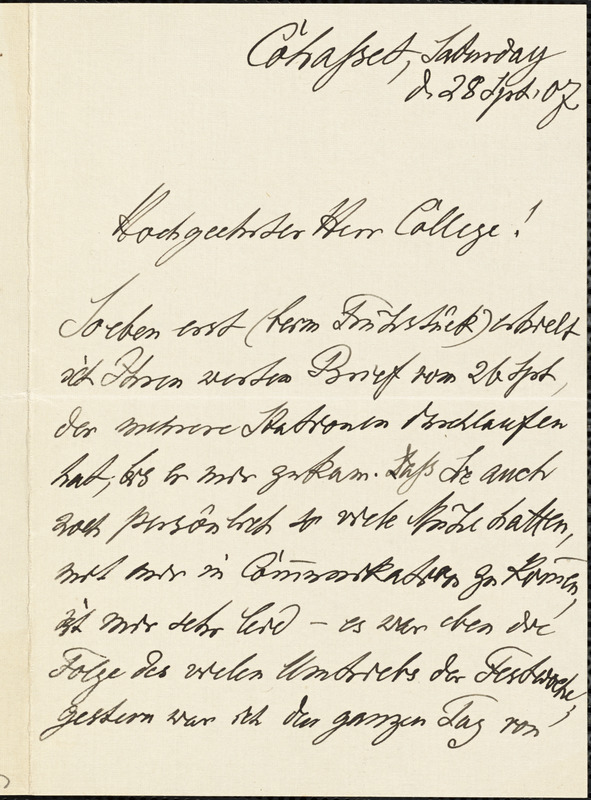 Cohasset, Saturday
d. 28 Sept. 07
Hochgeehrter Herr College!
Soeben erst (beim Frühstück) erhielt
ich Ihren werten Brief vom 26 Sept,
der mehrere Stationen durchlaufen
hat, bis er mir zukam. Dass Sie auch
noch persönlich so viele Mühe hatten,
mit mir in Com̅unikation zu kom̅en,
ist mir sehr leid – es war eben die
Folge des vielen Umtriebs der Festwoche;
gestern war ich den ganzen Tag von